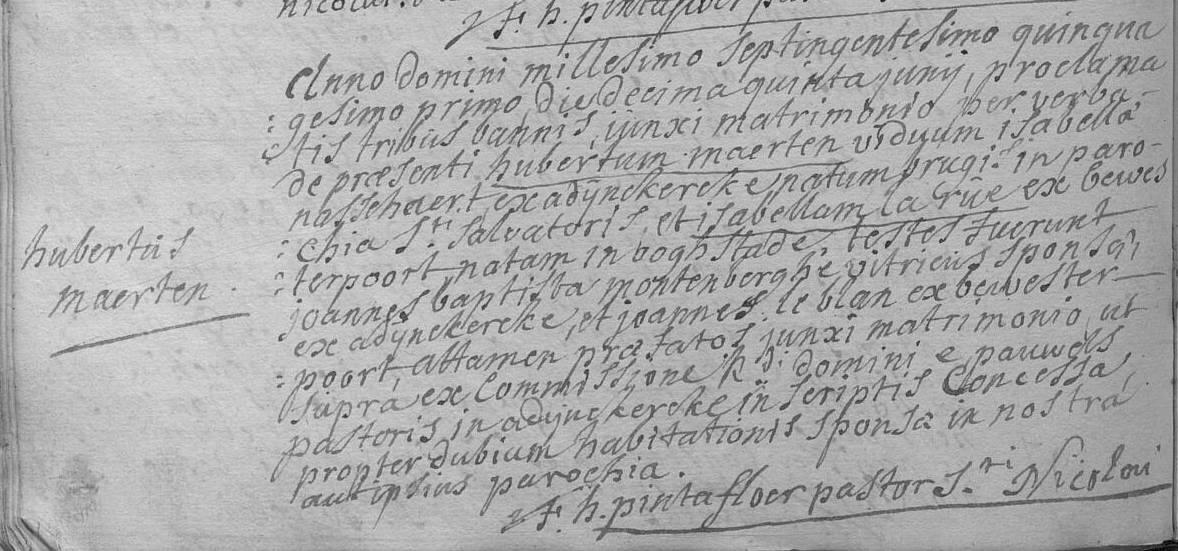 F. h. pintafloer
Anno domini millesimo septingentesimo quinqua
: gesimo primo, die decima quinta junij, proclama
: tis tribus bannis, junxi matrimonio per verba
de præsenti hubertum maerten viduum isabellæ
nassehaert ex adijnckercke natum brugis in paro-
: chia S.ti Salvatoris, et isabellam la rüe ex bewes
: terpoort natam in boghstade; testes fuerunt
joannes baptista montenberghe vitricus sponsi,
ex adijnckercke, et joannes le blan ex bewester
: poort, attamen præfatos junxi matrimonio ut
supra ex Commissione R di. domini e pauwels
pastoris in adijnckercke in scriptis Concessa,
propter dubium habitationis sponsæ in nostra
aut ipsius parochia.
F. h. pintafloer pastor S.ti Nicolai
hubertus
maerten